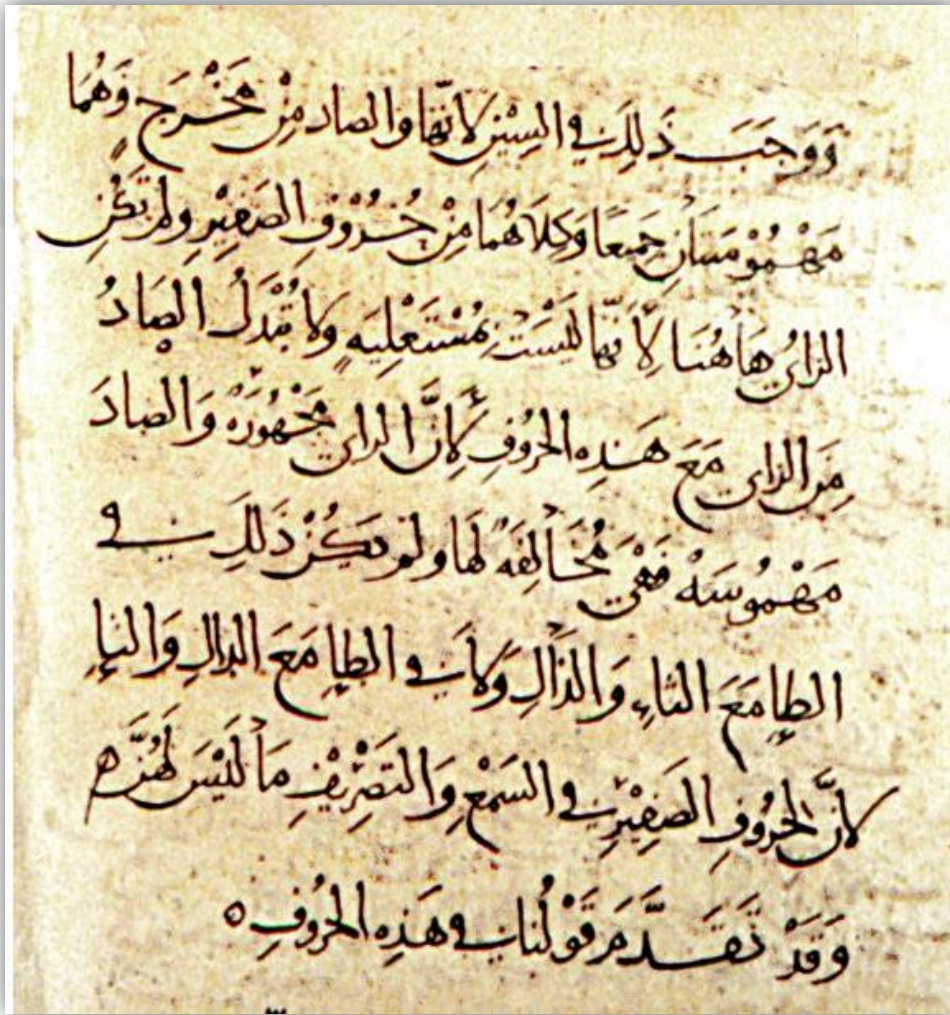 وَوَجَبَ ذَلِكَ فِي السِّيْنِ لِأَنَّهَا وَالصاد مِنْ مَخْرَجٍ وَهُمَا
مَهْمُوْسَتَانِ جَمِيْعًا وَكِلَاهُمَا مِنْ حُرُوْفِ الصَّفِيْرِ وَلَمْ تَكُنِ
الزايُ هَاهُنَا لِأَنَّهَا لَيْسَتْ بِمُسْتَعْلِيَهٍ وَلَا تُبْدَلُ الصَادُ
مِنَ الزاي مَعَ هَذِهِ الحُرُوفِ لِأَنَّ الزاي مَجْهُوْرَهٌ وَالصادَ
مَهْمُوسَهٌ فَهْيَ مُخَالِفَهٌ لَهَا وَلَمْ يَكُنْ ذَلِكَ فِي
الطاءِ مَعَ الثاءِ وَالذَالِ وَلَا فِي الطاءِ مَعَ الدالِ وَالتاءِ
لِأَنَّ لِحُرُوفِ الصَفِيْرِ فِي السَمْعِ وَالتَصْرِيْفِ مَا لَيْسَ لَهُنَّ ه
وَقَدْ تَقَدَّمَ قَوْلُنَا فِي هَذِهِ الحُرُوفِ ه